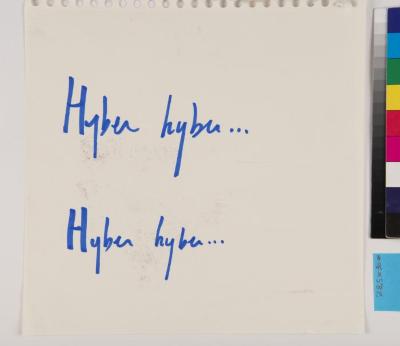 Hyber hyber...
Hyber hyber...